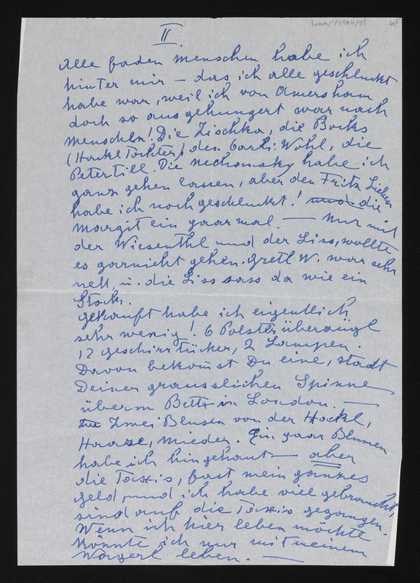 II
Alle faden Menschen habe ich
hinter mir – das ich alle geschluckt
habe war, weil ich von Amersham
doch so ausgehungert war nach
Menschen! Die Lischka, die Bocks
(Hackl Töchter) den Carli Wohl, die
Peter Till. Die Nechansky habe ich
ganz gehen lassen, aber den Fritz
habe ich noch geschluckt! und die
Margit ein paarmal – Nur mit
der Wiesenthl und der Liss, wollte
es garnicht gehen. Gretl W. war sehr
nett, u. die Liss sass da wie ein
Stock.
gekauft habe ich eigentlich
sehr wenig! 6 Polsterüberzügl
12 Geschirrtücher, 2 Lampen.
Davon bekommst Du eine, statt
Deiner grausslichen Spinne
überm Bett in London. –
Zwei Blusen von der Hackl,
Haare, Mieder. Ein paar Blumen
habe ich hingehaut – aber
die Taxis, fast mein ganzes
Geld, und ich habe viel gebraucht,
sind auf die Taxis gegangen.
Wenn ich hier leben möchte
könnte ich nur mit einem
Wagerl leben. –